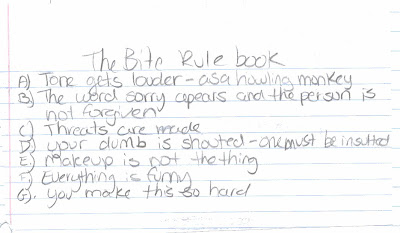 The Bitc Rule book
A) Tone gets louder - as a howling monkey
B) The word sorry apears and the person is
not forgiven
C) Threats are made
D) your dumb is shouted - one must be insulted
E) makeup is not the thing
F) Everything is funny
G). you make this so hard